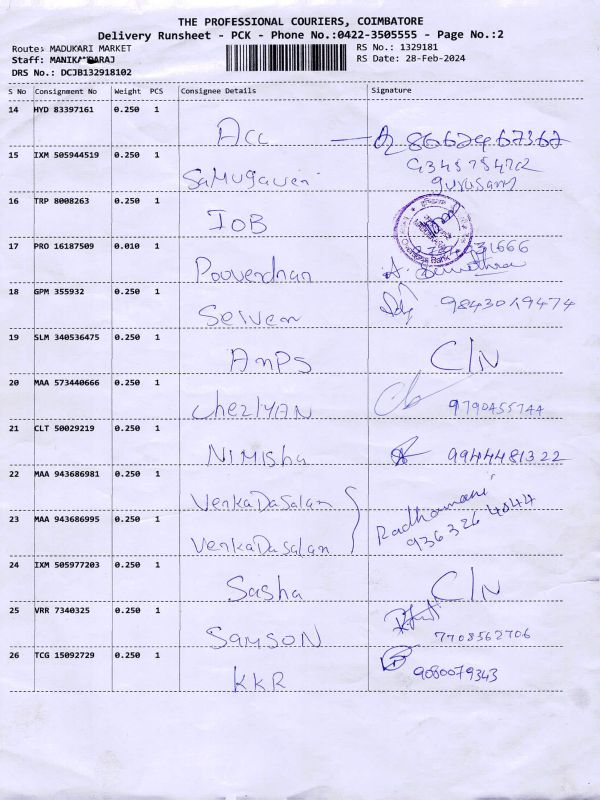 THE PROFESSIONAL COURIERS, COIMBATORE
Delivery Runsheet - PCK - Phone No.:0422-3505555 - Page No.:2
Route: MADUKARI MARKET
RS No.: 1329181
Staff: MANIK
RS Date: 28-Feb-2024
DRS No.: DCJB132918102
S No Consignment No Weight PCS Consignee Details Signature
14 HYD 83397161 0.250 1
Acc
15 IXM 505944519 0.250 1
16 TRP 8008263 0.250 1
IOB
17 PRO 16187509 0.010 1
18 GPM 355932 0.250 1
Selven 9843019474
19 SLM 340536475 0.250 1
AMPS C/N
20 MAA 573440666 0.250 1
ChezIYAN 9790455744
21 CLT 50029219 0.250 1
NIMisha 9944481322
22 MAA 943686981 0.250 1
VenkaDaSalan Radhamani
23 MAA 943686995 0.250 1
VenkaDaSalan 936326 4044
24 IXM 505977203 0.250 1
Sasha C/N
25 VRR 7340325 0.250 1
SAMSON 7708562706
26 TCG 15092729 0.250 1
KKR 9080079343